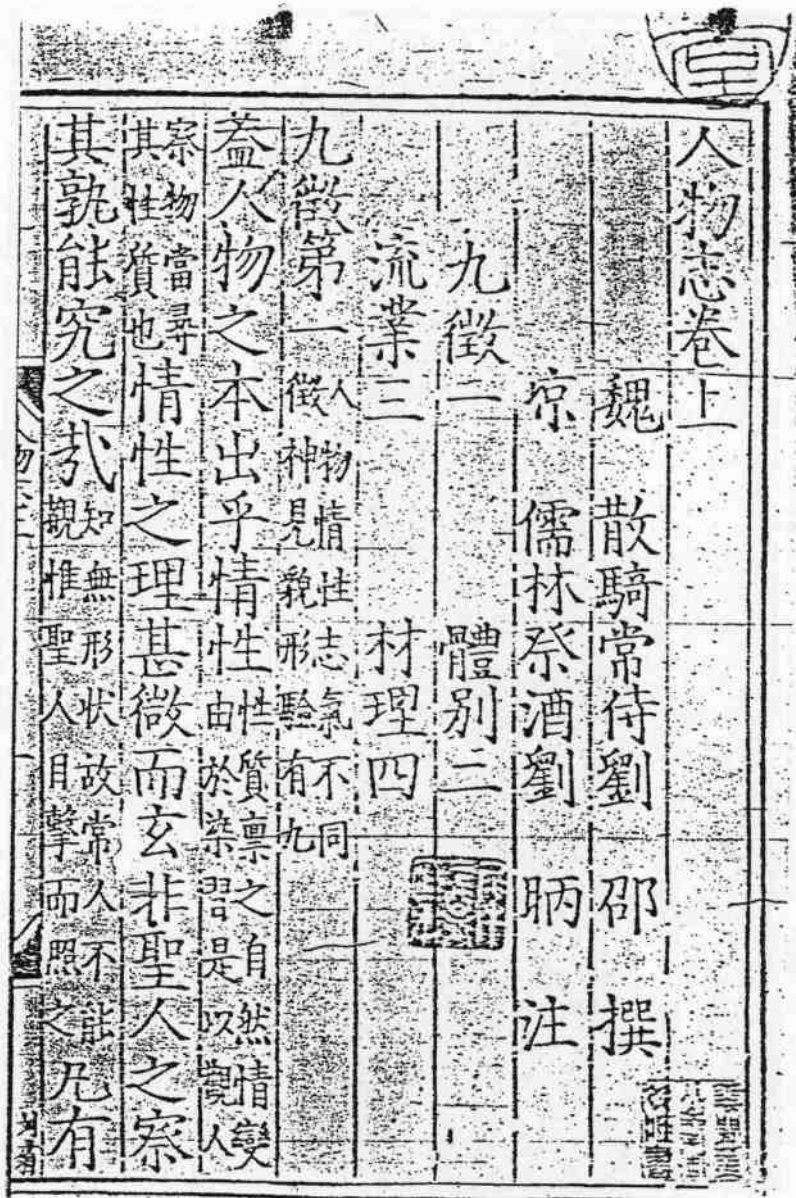 人物志卷上
魏 散騎常侍劉 邵 撰
凉 儒林祭酒劉 昞 注
九徵一 體別二
流業三 材理四
九徵第一 人物情性志氣不同徵神見貌形驗有九
蓋人物之本出乎情性 性質禀之自然情變由於染習是以觀人
察物當尋其性質也 情性之理甚微而玄非聖人之察
其孰能究之哉 知無形状故常人不能觀惟聖人目擊而照之 凡有